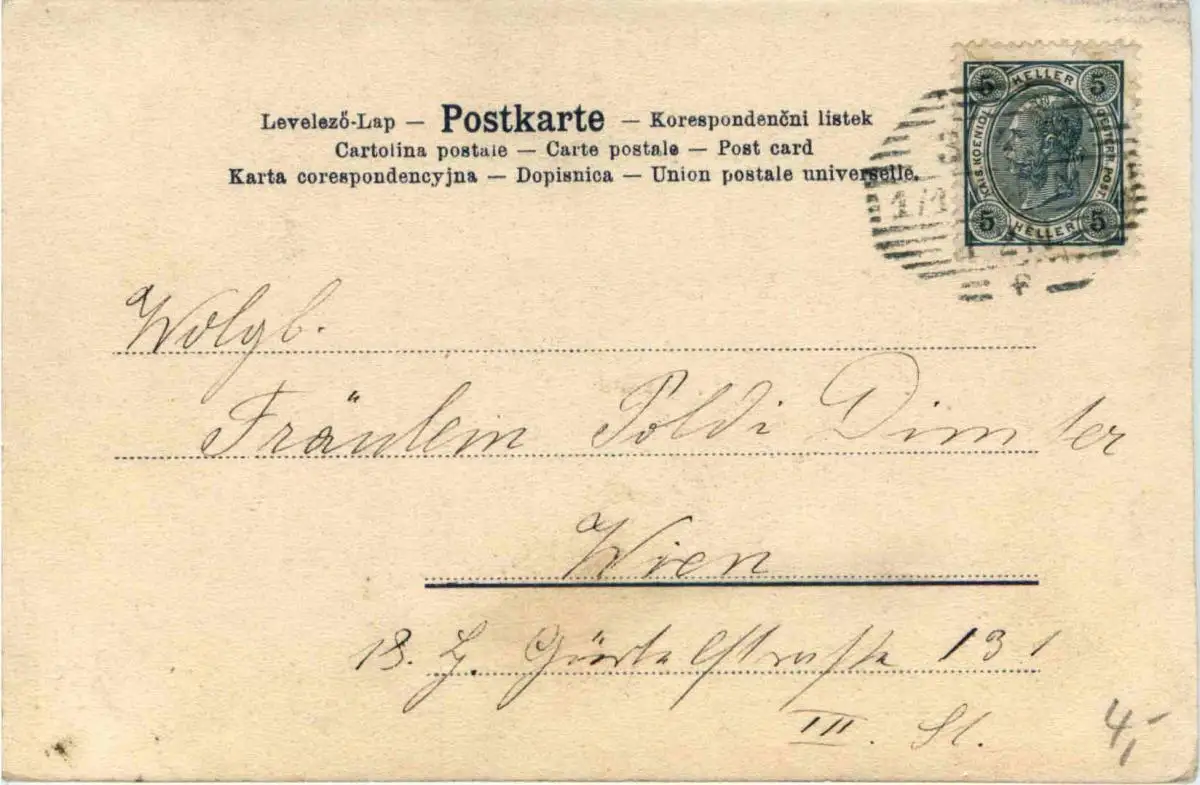 Levelező-Lap — Postkarte — Korespondenčni listek
Cartolina postale — Carte postale — Post card
Karta corespondencyjna — Dopisnica — Union postale universelle.
5 HELLER 5
KAIS. KOENIGL. OESTERR. POST.
5 HELLER 5
Wolgb.
Fräulein Poldi Dimter
Wien
18. Gürtelstraße 131
III. St.
4,-